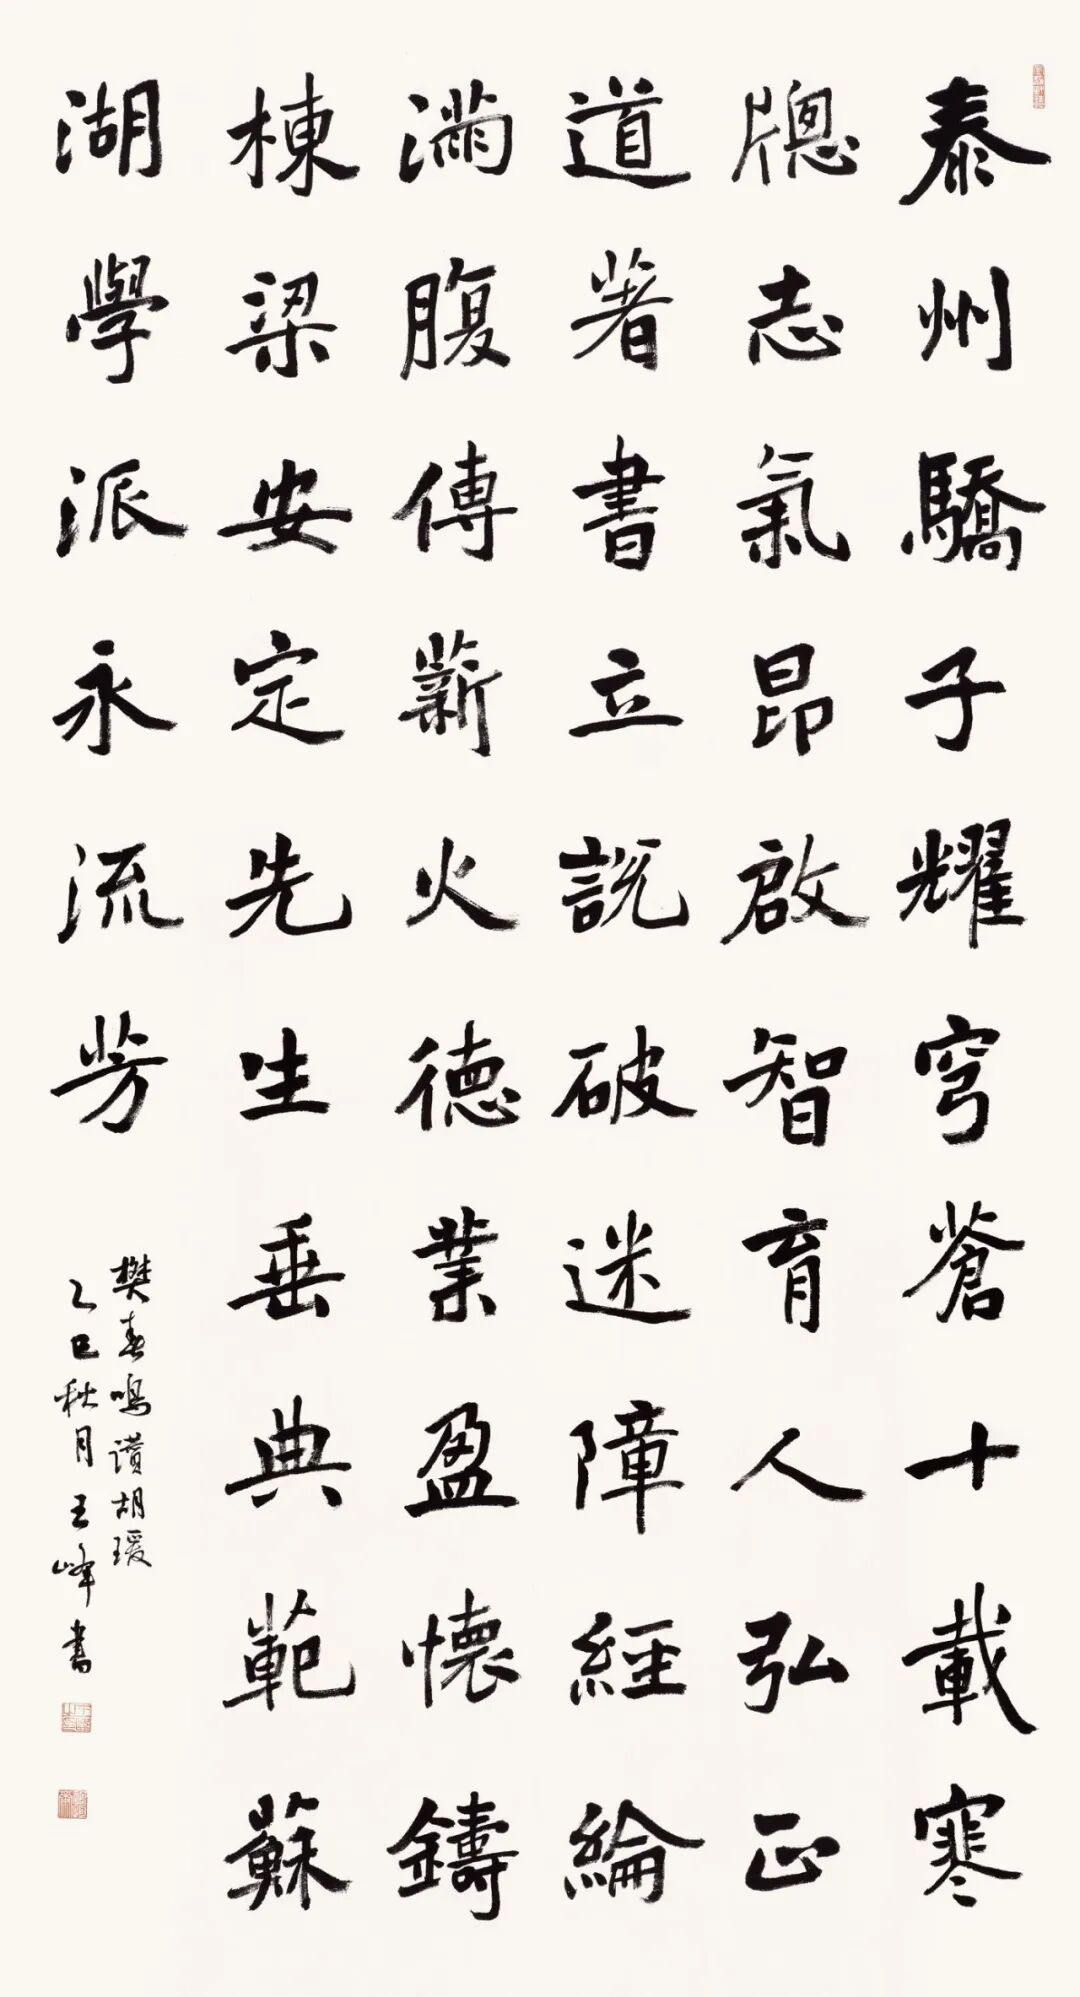 泰州驕子耀穹蒼十載寒
牕志氣昂啟智育人弘正
道著書立説破迷障經綸
滿腹傳薪火德業盈懷鑄
棟梁安定先生垂典範蘇
湖學派永流芳
樊春鳴讚胡瑗
乙巳秋月王峰書